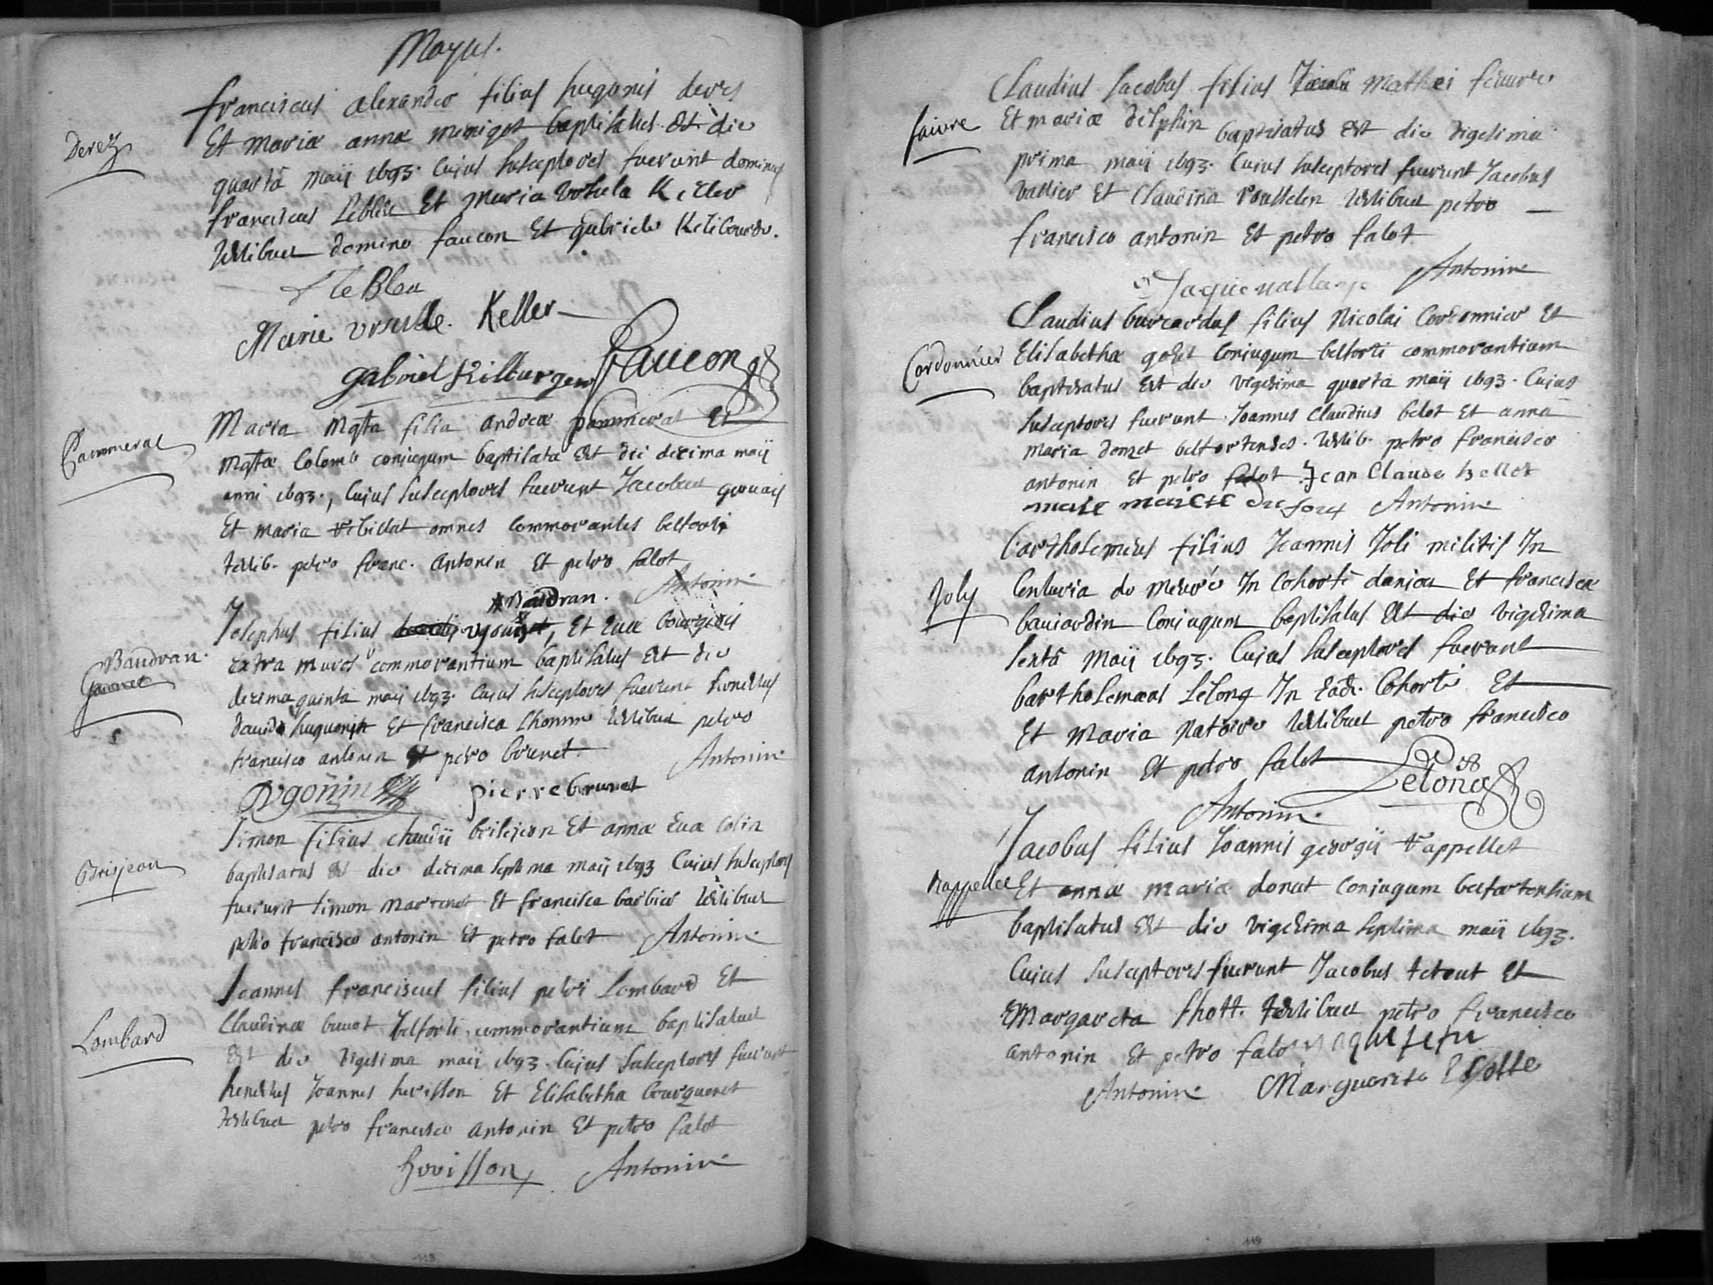 Mayus.
Derez
franciscus alexander filius hugonis deres
Et mariæ annæ menigot baptisatus Est die
quarta maij 1693. Cujus susceptores fuerunt dominus
franciscus Lebleu Et Maria Vrsula Keller
testibus domino faucon Et gabriele Kelibourdr.
le Bleu
Marie Vrsulle Keller
gabriel Kilburger Faucon
Pammerat
Maria Mgta filia andreæ pammerat Et
Mgtæ Colomb conjugum baptisata Est die decima maij
anni 1693., Cujus susceptores fuerunt Jacobus
Et maria omnes commorantes belforti
testib. petro franc. antonin Et petro falot
Antonin
Baudran.
Josephus filius Et Evæ bourgeois
Baudran.
Extra muros commorantium baptisatus Est die
decima quinta maij 1693. Cujus susceptores fuerunt
david hugonin Et francisca Lhomme testibus petro
francisco antonin Et petro brunet.
Antonin
Dvgonin pierre brunet
Simon filius claudij brisejeon Et annæ Evæ Colin
Brisjean
baptisatus Est die decima septima maij 1693 Cujus susceptores
fuerunt simon martenot Et francisca barbier testibus
petro francisco antonin Et petro falot Antonin
Joannes franciscus filius petri Lombard Et
Lombard
Claudinæ buvot belforti commorantium baptisatus
Est die vigesima maij 1693. Cujus susceptores fuerunt
Joannes hevisson Et Elisabetha Courqueret
testibus petro francisco antonin Et petro falot
hovisson Antonin
Claudius Jacobus filius Mathei feivre
faivre
Et mariæ delphin baptisatus Est die vigesima
prima maij 1693. Cujus susceptores fuerunt Jacobus
vallier Et Claudina rousselen testibus petro
francisco antonin Et petro falot
Antonin
Claudius burcardus filius Nicolai Cordonnier Et
Cordonnier
Elisabethæ conjugum belforti commorantium
baptisatus Est die vigesima quarta maij 1693. Cujus
susceptores fuerunt Joannes Claudius belot Et anna
maria donzet belfortenses. testib. petro francisco
antonin Et petro falot Jean Claude bellot
Antonin
bartholemeus filius Joannis Joli militis In
Joly
Centuria de In Cohorte danjou Et franciscæ
bauiardin Conjugum baptisatus Est die vigesima
sexta maij 1693. Cujus susceptores fuerunt
bartholemæus Lelong In Ead. Cohorte Et
Et Maria Natoire testibus petro francisco
antonin Et petro falot Lelong
Antonin.
Jacobus filius Joannis georgij trappellet
trappellee
Et annæ mariæ donat conjugum belfortensium
baptisatus Est die vigesima septima maij 1693.
Cujus susceptores fuerunt Jacobus tetout Et
Margareta shott. testibus petro francisco
antonin Et petro falot
Antonin Marguerite
119
119